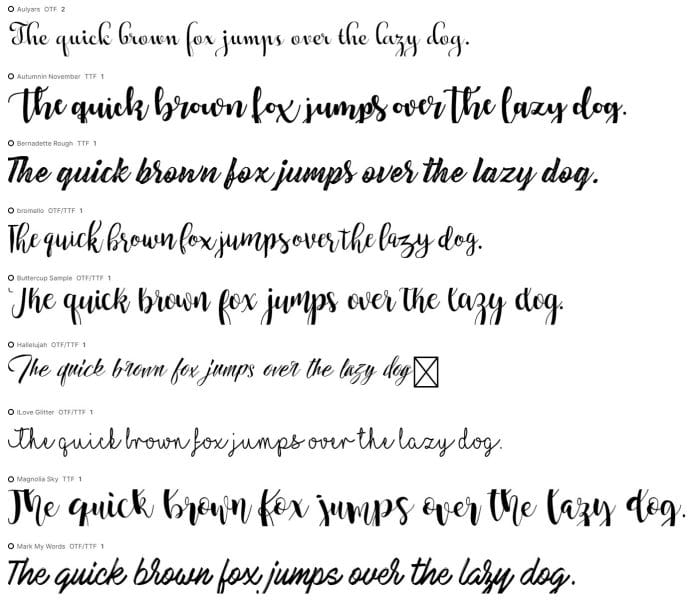 Aulyars OTF 2
The quick brown fox jumps over the lazy dog.
Autumnin November TTF 1
The quick brown fox jumps over The lazy dog.
Bernadette Rough TTF 1
The quick brown fox jumps over the lazy dog.
bromello OTF/TTF 1
The quick brown fox jumps over the lazy dog.
Buttercup Sample OTF/TTF 1
The quick brown fox jumps over the lazy dog.
Hallelujah OTF/TTF 1
The quick brown fox jumps over the lazy dog
ILove Glitter OTF/TTF 1
The quick brown fox jumps over the lazy dog.
Magnolia Sky TTF 1
The quick brown fox jumps over the lazy dog.
Mark My Words OTF/TTF 1
The quick brown fox jumps over the lazy dog.